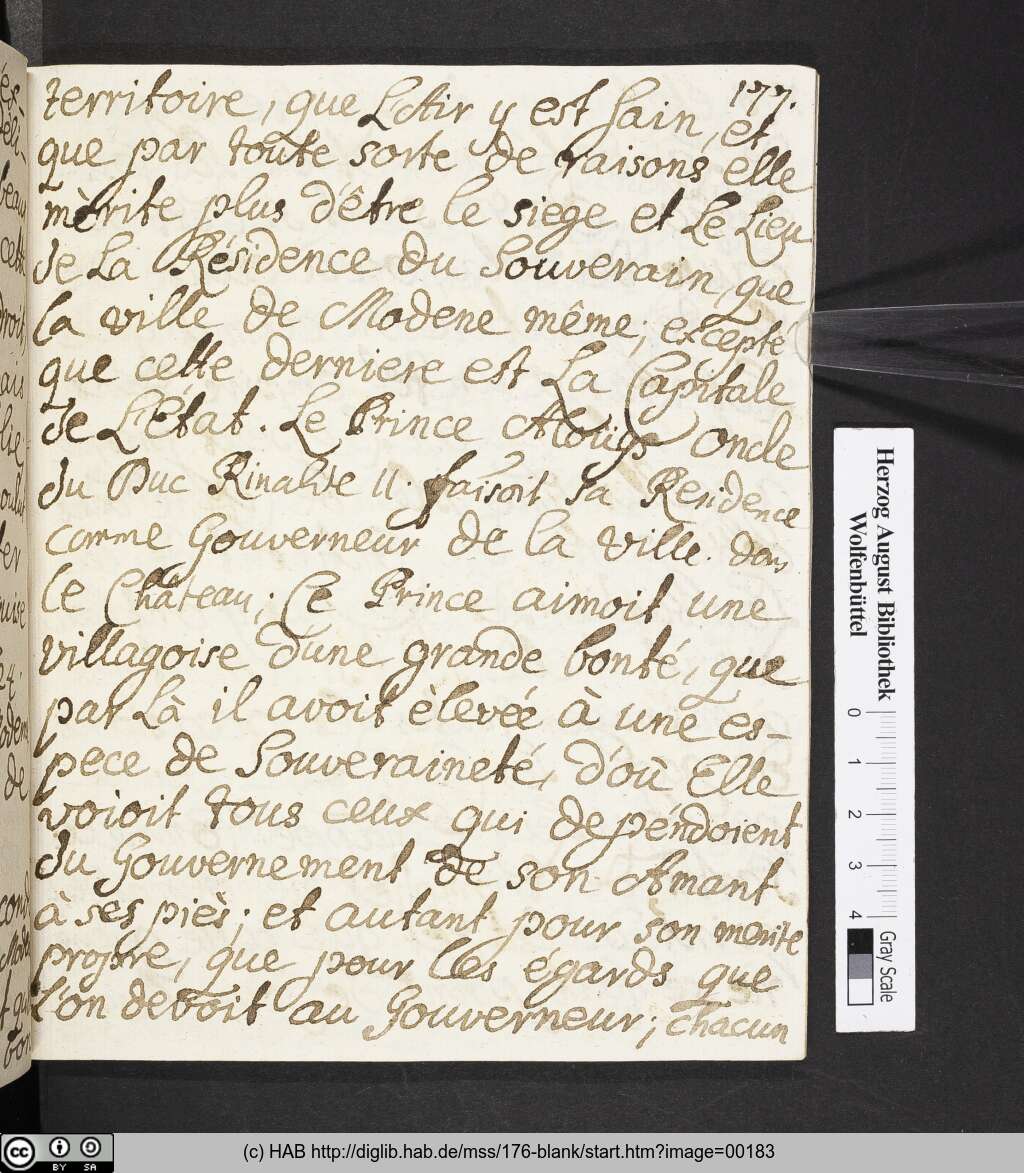 177.
territoire, que L'Air y est sain, et
que par toute sorte de raisons elle
mèrite plus d'être le siege et Le Lieu
de La Résidence du Souverain, que
la ville de Modene même; excepté
que cette derniere est La Capitale
de L'état. Le Prince Alouys oncle
du Duc Rinalde II. faisoit sa Residence
comme Gouverneur de la ville. dans
le Château; Ce Prince aimoit une
villagoise d'une grande bonté, que
par Là il avoit èlevéé à une es-
pece de Souveraineté, d'où Elle
voioit tous ceux qui depéndoient
du Gouvernement de son Amant
à ses piès; et autant pour son merite
propre, que pour les égards que
l'on devoit au Gouverneur; chacun
Herzog August Bibliothek
Wolfenbüttel
0 1 2 3 4
Gray Scale
cc BY SA
(c) HAB http://diglib.hab.de/mss/176-blank/start.htm?image=00183